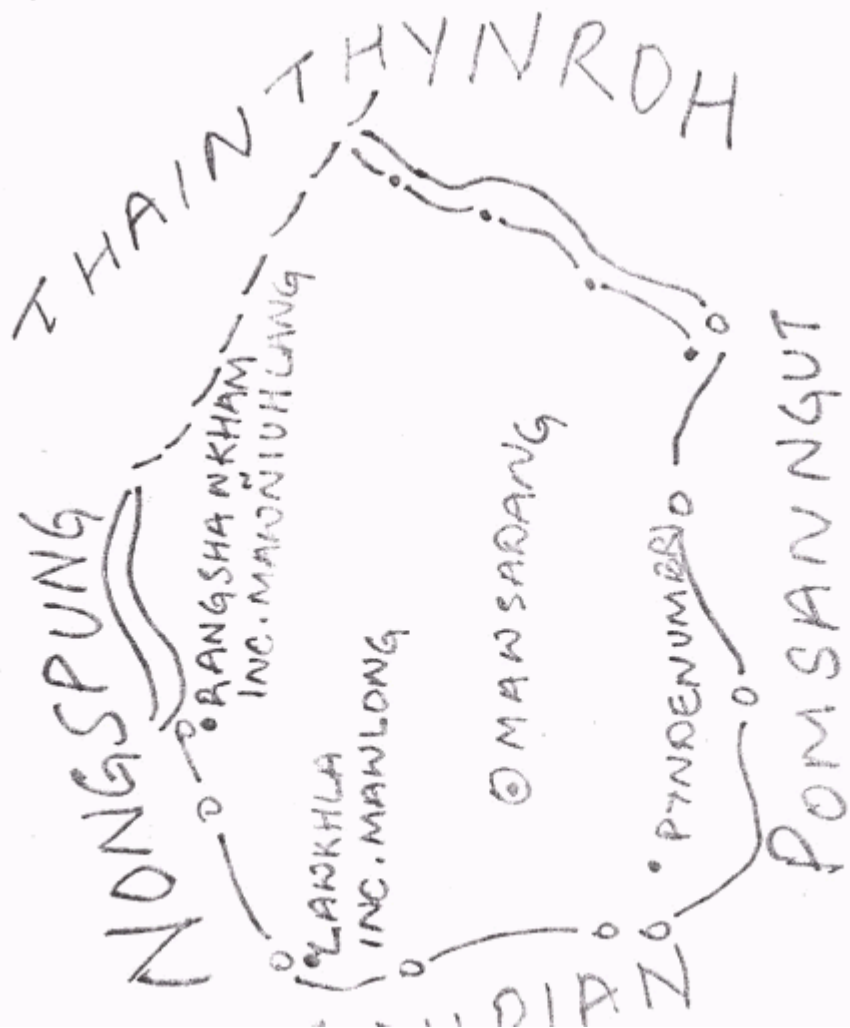 THAIN THYNROH
NONGSPUNG
RANGSHANKHAM
INC. MAWÑIUHLANG
LAWKHLA
INC. MAWLONG
MAWSADANG
PYNDENUMBRI
POMSANNGUT